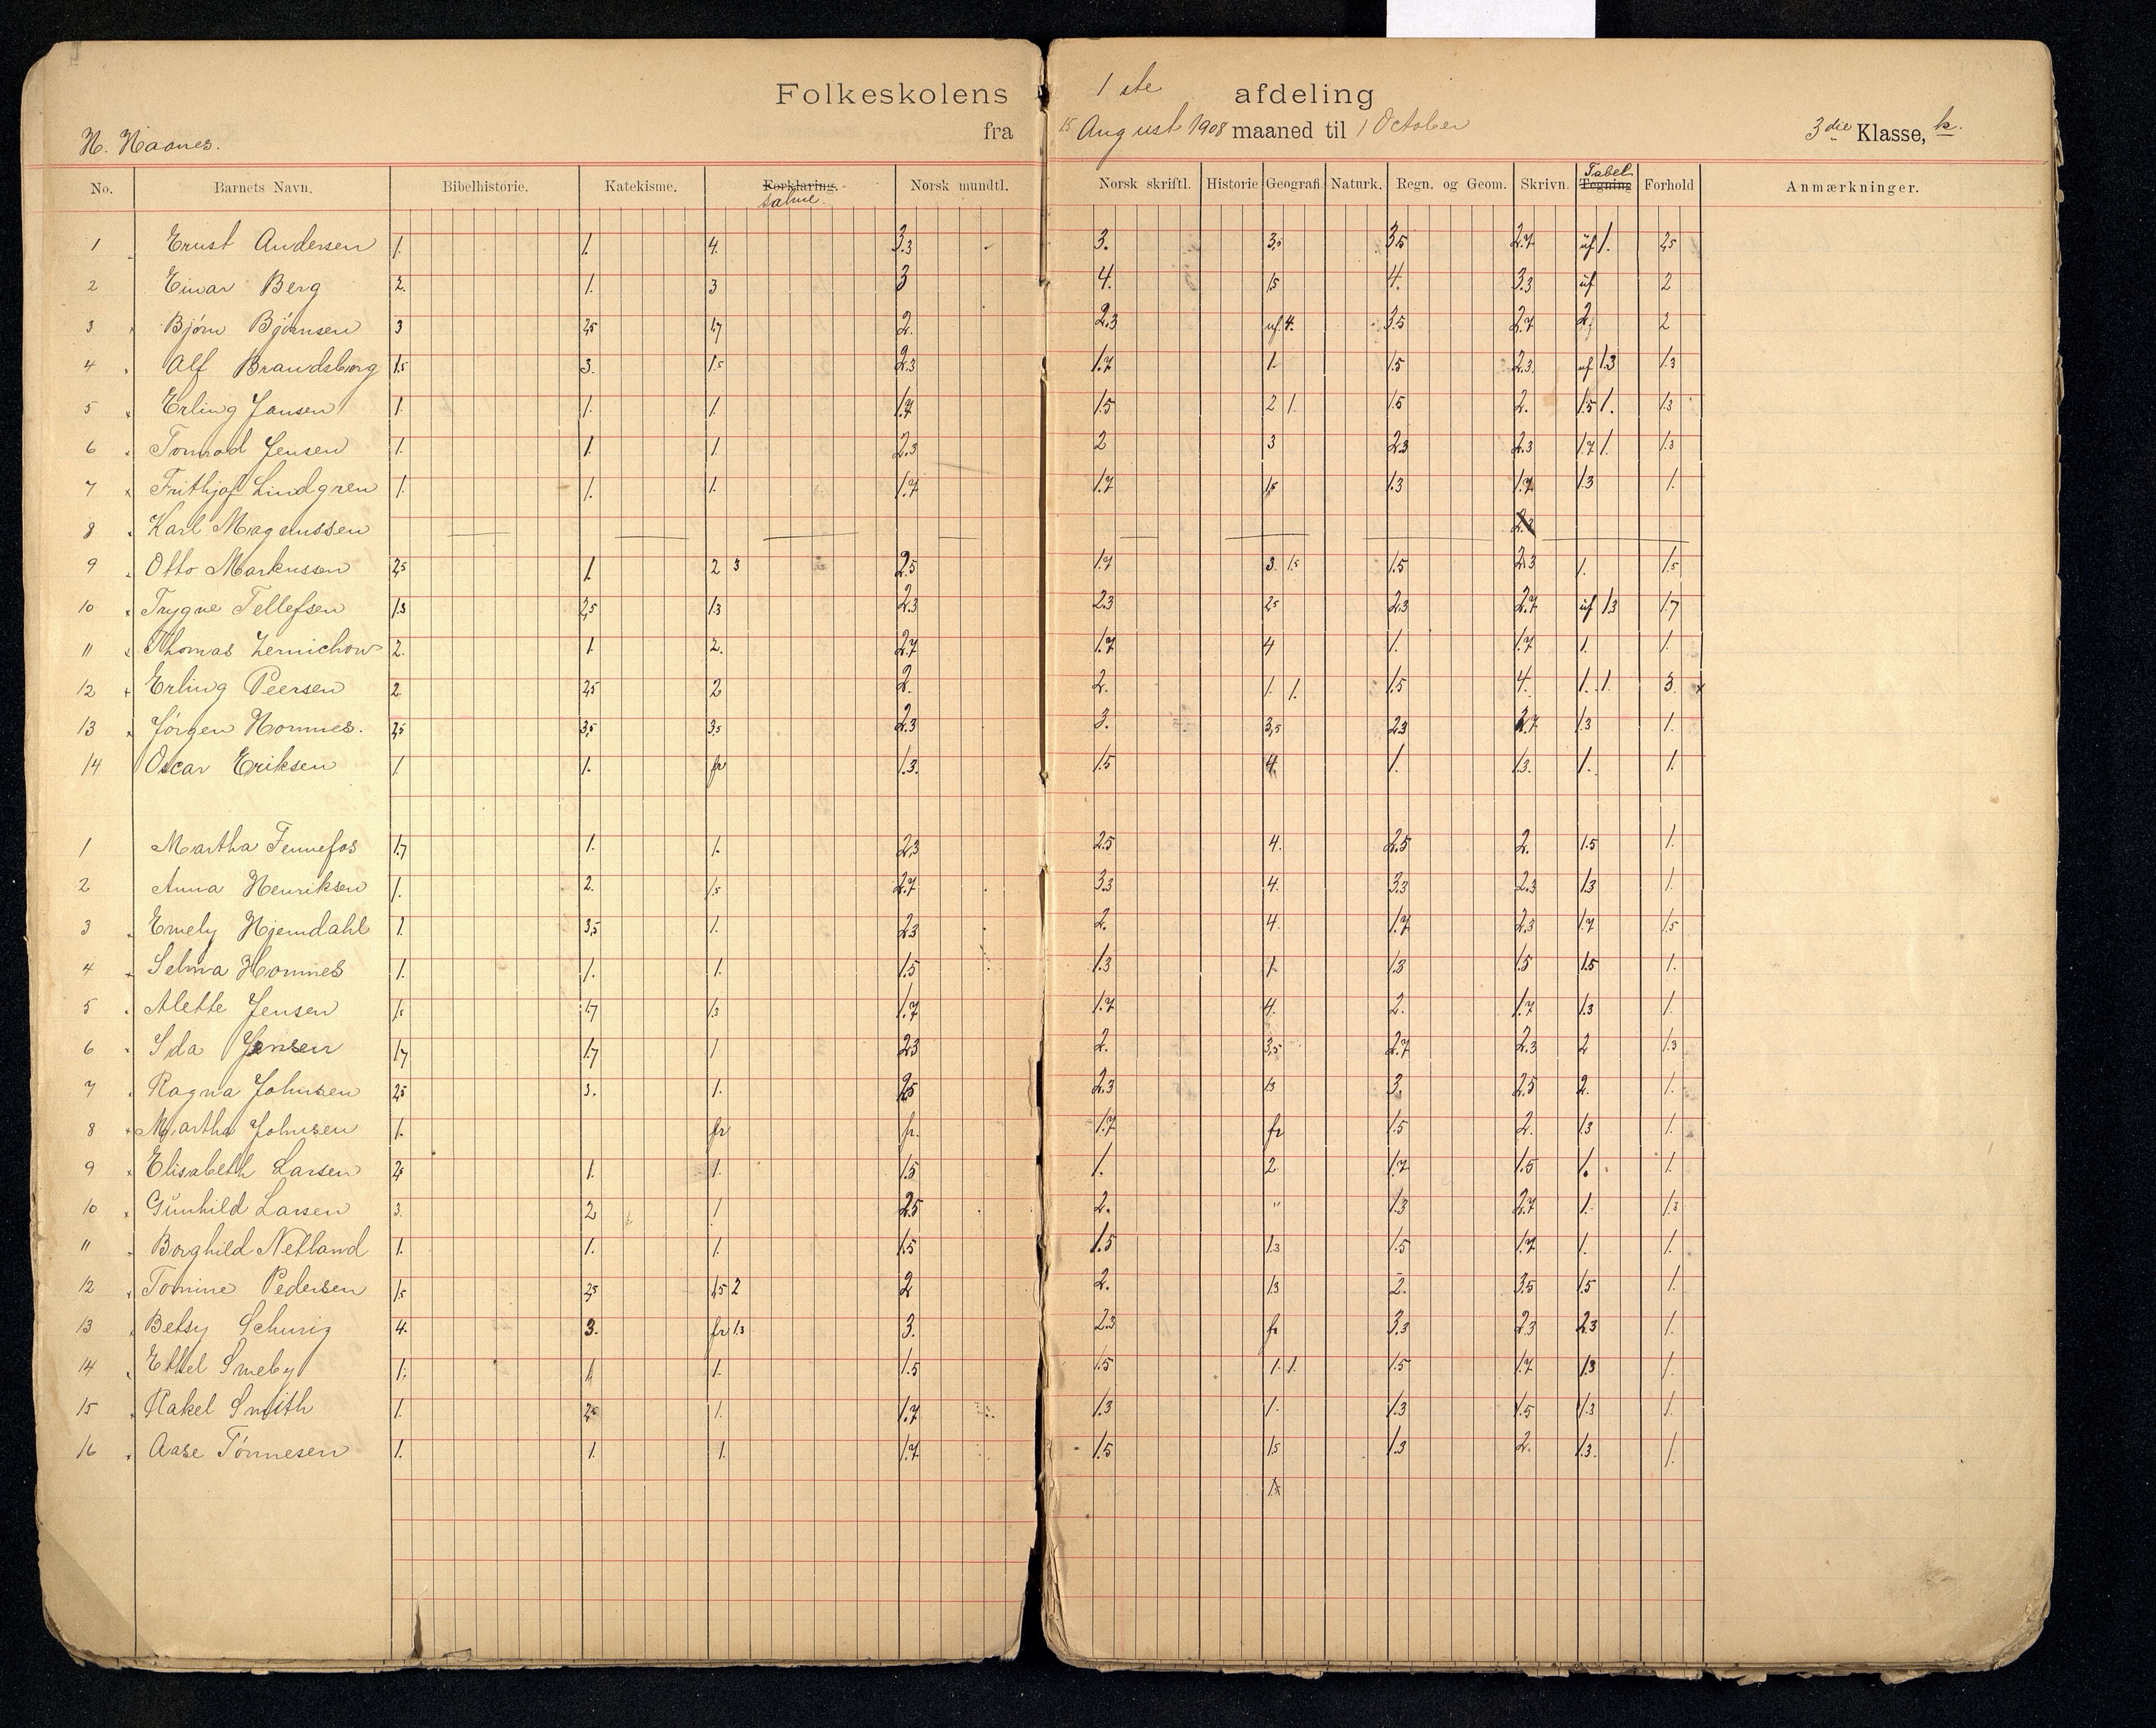 Folkeskolens 1 ste afdeling
H. Haanes. fra 15 August 1908 maaned til 1 October 3die Klasse, k.
No. Barnets Navn. Bibelhistorie. Katekisme. Forklaring. Norsk mundtl. Norsk skriftl. Historie Geografi Naturk. Regn. og Geom. Skrivn. Tegning Forhold Anmærkninger.
Salme. Tabel
1 Ernst Andersen 1. 1. 4. 3.3 3. 3,5 3.5 2.7 uf 1. 2,5
2 Einar Berg 2. 1. 3 3 4. 1.5 4. 3.3 uf 2
3 Bjørn Bjørnsen 3 2,5 1.7 2. 2.3 uf. 4. 3.5 2.7 2. 2
4 Alf Brandsborg 1.5 3. 1.5 2.3 1.7 1. 1.5 2.3 uf 1.3 1.3
5 Erling Jansen 1. 1. 1. 1.7 1.5 2 1. 1.5 2. 1.5 1. 1.3
6 Tormod Jensen 1. 1. 1 2.3 2 3 2.3 2.3 1.7 1. 1.3
7 Frithjof Lindgren 1. 1. 1. 1.7 1.7 1.5 1.3 1.7 1.3 1.
8 Karl Magnussen
9 Otto Markussen 2,5 1. 2 3 2.5 1.7 3. 1.5 1.5 2.3 1. 1.5
10 Trygve Tellefsen 1.3 2,5 1.3 2.3 2.3 2,5 2.3 2.7 uf 1.3 1.7
11 Thomas Zernichow 2. 1. 2. 2.7 1.7 4 1. 1.7 1. 1.
12 Erling Peersen 2. 2,5 2 2. 2. 1. 1. 1.5 4. 1. 1. 3. x
13 Jørgen Homnes. 2,5 3,5 3,5 2.3 3. 3,5 2.3 2.7 1.3 1.
14 Oscar Eriksen 1. 1. fr 1.3. 1.5 4. 1. 1.3. 1. 1.
1 Martha Tennefos 1.7 1. 1. 2.3 2.5 4. 2.5 2. 1.5 1.
2 Anna Henriksen 1. 2. 1.5 2.7 3.3 4. 3.3 2.3 1.3 1.
3 Emely Hjemdahl 1. 3,5 1. 2.3 2. 4. 1.7 2.3 1.7 1.5
4 Selma Homnes 1. 1. 1. 1.5 1.3 1. 1.3 1.5 1.5 1.
5 Alette Jensen 1.5 1.7 1.3 1.7 1.7 4. 2. 1.7 1.3 1.
6 Ida Jensen 1.7 1.7 1 2.3 2. 3,5 2.7 2.3 2 1.3
7 Ragna Johnsen 2,5 3. 1. 2.5 2.3 1.3 3. 2.5 2. 1.
8 Martha Johnsen 1. fr fr. 1.7 fr 1.5 2. 1.3 1.
9 Elisabeth Larsen 2,5 1. 1. 1.5 1. 2 1.7 1.5 1. 1.
10 Gunhild Larsen 3. 2 1 2.5 2. " 1.3 2.7 1. 1.3
11 Borghild Netland 1. 1. 1. 1.5 1.5 1.3 1.5 1.7 1. 1.
12 Tomine Pedersen 1.5 2,5 1.5 2 2 2. 1.3 2. 3.5 1.5 1.
13 Betsy Schurig 4. 3. fr 1.3 3. 2.3 fr 3.3 2.3 2.3 1.
14 Ethel Smeby 1. 1 1. 1.5 1.5 1. 1. 1.5 1.7 1.3 1.
15 Rakel Smith 1. 2,5 1. 1.7 1.3 1. 1.3 1.5 1.3 1.
16 Aase Tønnesen 1. 1. 1. 1.7 1.5 1.5 1.3 2. 1.3. 1.